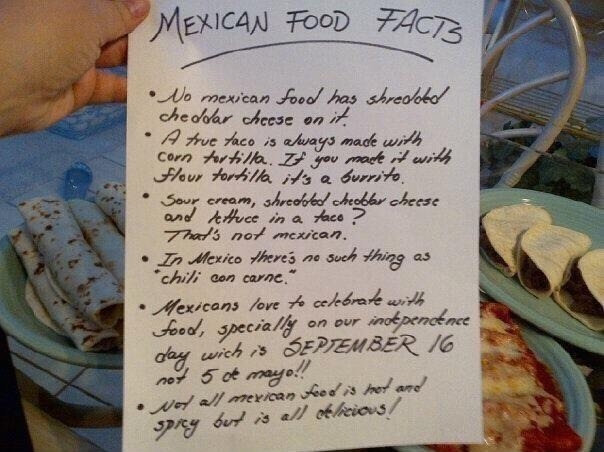 MEXICAN FOOD FACTS
• No mexican food has shredded
cheddar cheese on it.
• A true taco is always made with
corn tortilla. If you made it with
flour tortilla it's a burrito.
• Sour cream, shredded cheddar cheese
and lettuce in a taco?
That's not mexican.
• In Mexico there's no such thing as
"chili con carne."
• Mexicans love to celebrate with
food, specially on our independence
day wich is SEPTEMBER 16
not 5 de mayo!!
• Not all mexican food is hot and
spicy but is all delicious!